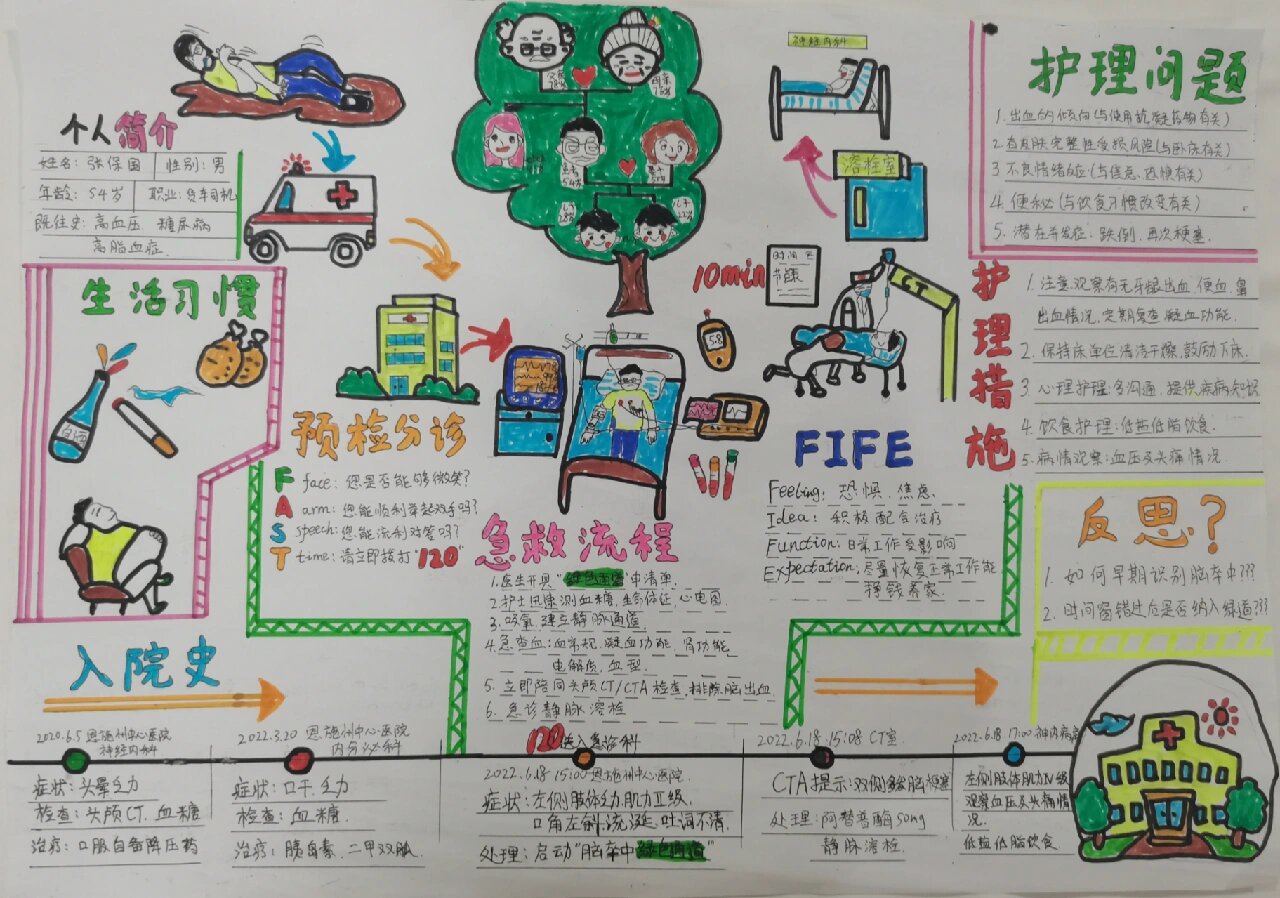 个人简介
姓名：张保国 性别：男
年龄：54岁 职业：货车司机
既往史：高血压 糖尿病
高脂血症
生活习惯
白酒
预检分诊
FAST
face：您是否能够微笑？
arm：您能顺利举起双手吗？
speech：您能流利对答吗？
time：请立即拨打“120”
急救流程
1.医生开具“绿色通道”申请单
2.护士迅速测血糖，生命体征，心电图
3.吸氧 建立静脉通道
4.急查血：血常规、凝血功能、肾功能
电解质、血型
5.立即陪同头颅CT/CTA检查，排除脑出血
6.急诊静脉溶栓
神经内科
溶栓室
10min
CT
5.8
FIFE
Feeling：恐惧、焦虑
Idea：积极配合治疗
Function：日常工作受影响
Expectation：尽量恢复正常工作能
挣钱养家
护理问题
1.出血的倾向（与使用抗凝药物有关）
2.有皮肤完整性受损风险（与卧床有关）
3.不良情绪反应（与焦虑、恐惧有关）
4.便秘（与饮食习惯改变有关）
5.潜在并发症：跌倒、再次梗塞
护理措施
1.注意观察有无牙龈出血、便血、鼻
出血情况，定期复查凝血功能。
2.保持床单位清洁干燥，鼓励下床。
3.心理护理：多沟通，提供疾病知识
4.饮食护理：低盐低脂饮食。
5.病情观察：血压及头痛情况
反思？
1.如何早期识别脑卒中???
2.时间窗错过后是否纳入绿道???
入院史
2020.6.5 恩施州中心医院
神经内科
症状：头晕乏力
检查：头颅CT、血糖
治疗：口服自备降压药
2022.3.20 恩施州中心医院
内分泌科
症状：口干、乏力
检查：血糖
治疗：胰岛素、二甲双胍
120送入急诊科
2022.6.18 15:00 恩施州中心医院
症状：左侧肢体乏力肌力Ⅱ级，
口角左斜、流涎、吐词不清
处理：启动“脑卒中绿色通道”
2022.6.18 15:08 CT室
CTA提示：双侧 脑梗塞
处理：阿替普酶50mg
静脉溶栓
2022.6.18 17:00 神内病房
左侧肢体肌力Ⅳ级
观察血压及头痛情
况
低盐低脂饮食